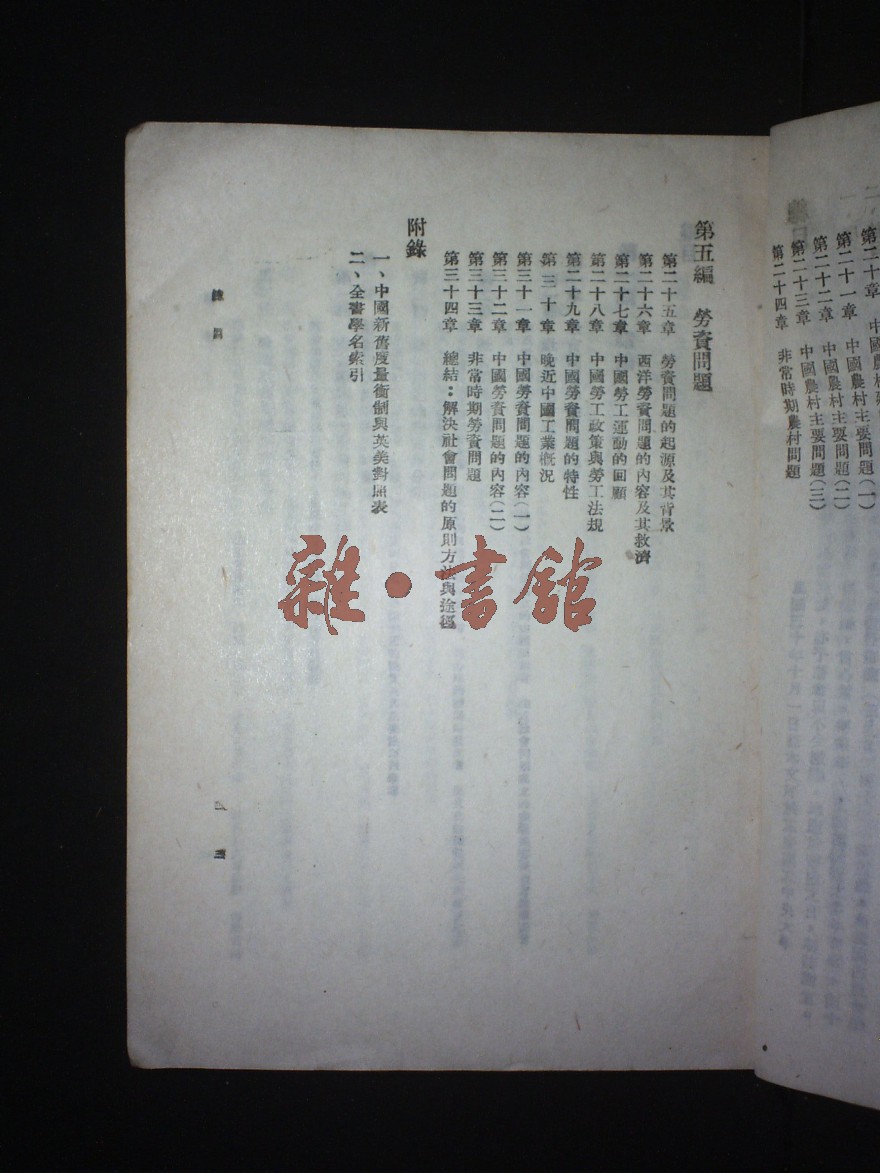 第二十章 中國農村
第二十一章 中國農村主要問題(一)
第二十二章 中國農村主要問題(二)
第二十三章 中國農村主要問題(三)
第二十四章 非常時期農村問題
第五編 勞資問題
第二十五章 勞資問題的起源及其背景
第二十六章 西洋勞資問題的內容及其救濟
第二十七章 中國勞工運動的回顧
第二十八章 中國勞工政策與勞工法規
第二十九章 中國勞資問題的特性
第三十章 晚近中國工業概況
第三十一章 中國勞資問題的內容(一)
第三十二章 中國勞資問題的內容(二)
第三十三章 非常時期勞資問題
第三十四章 總結:解決社會問題的原則方法與途徑
附錄
一、中國新舊度量衡制與英美對照表
二、全書學名索引
總目
三
雜·書館